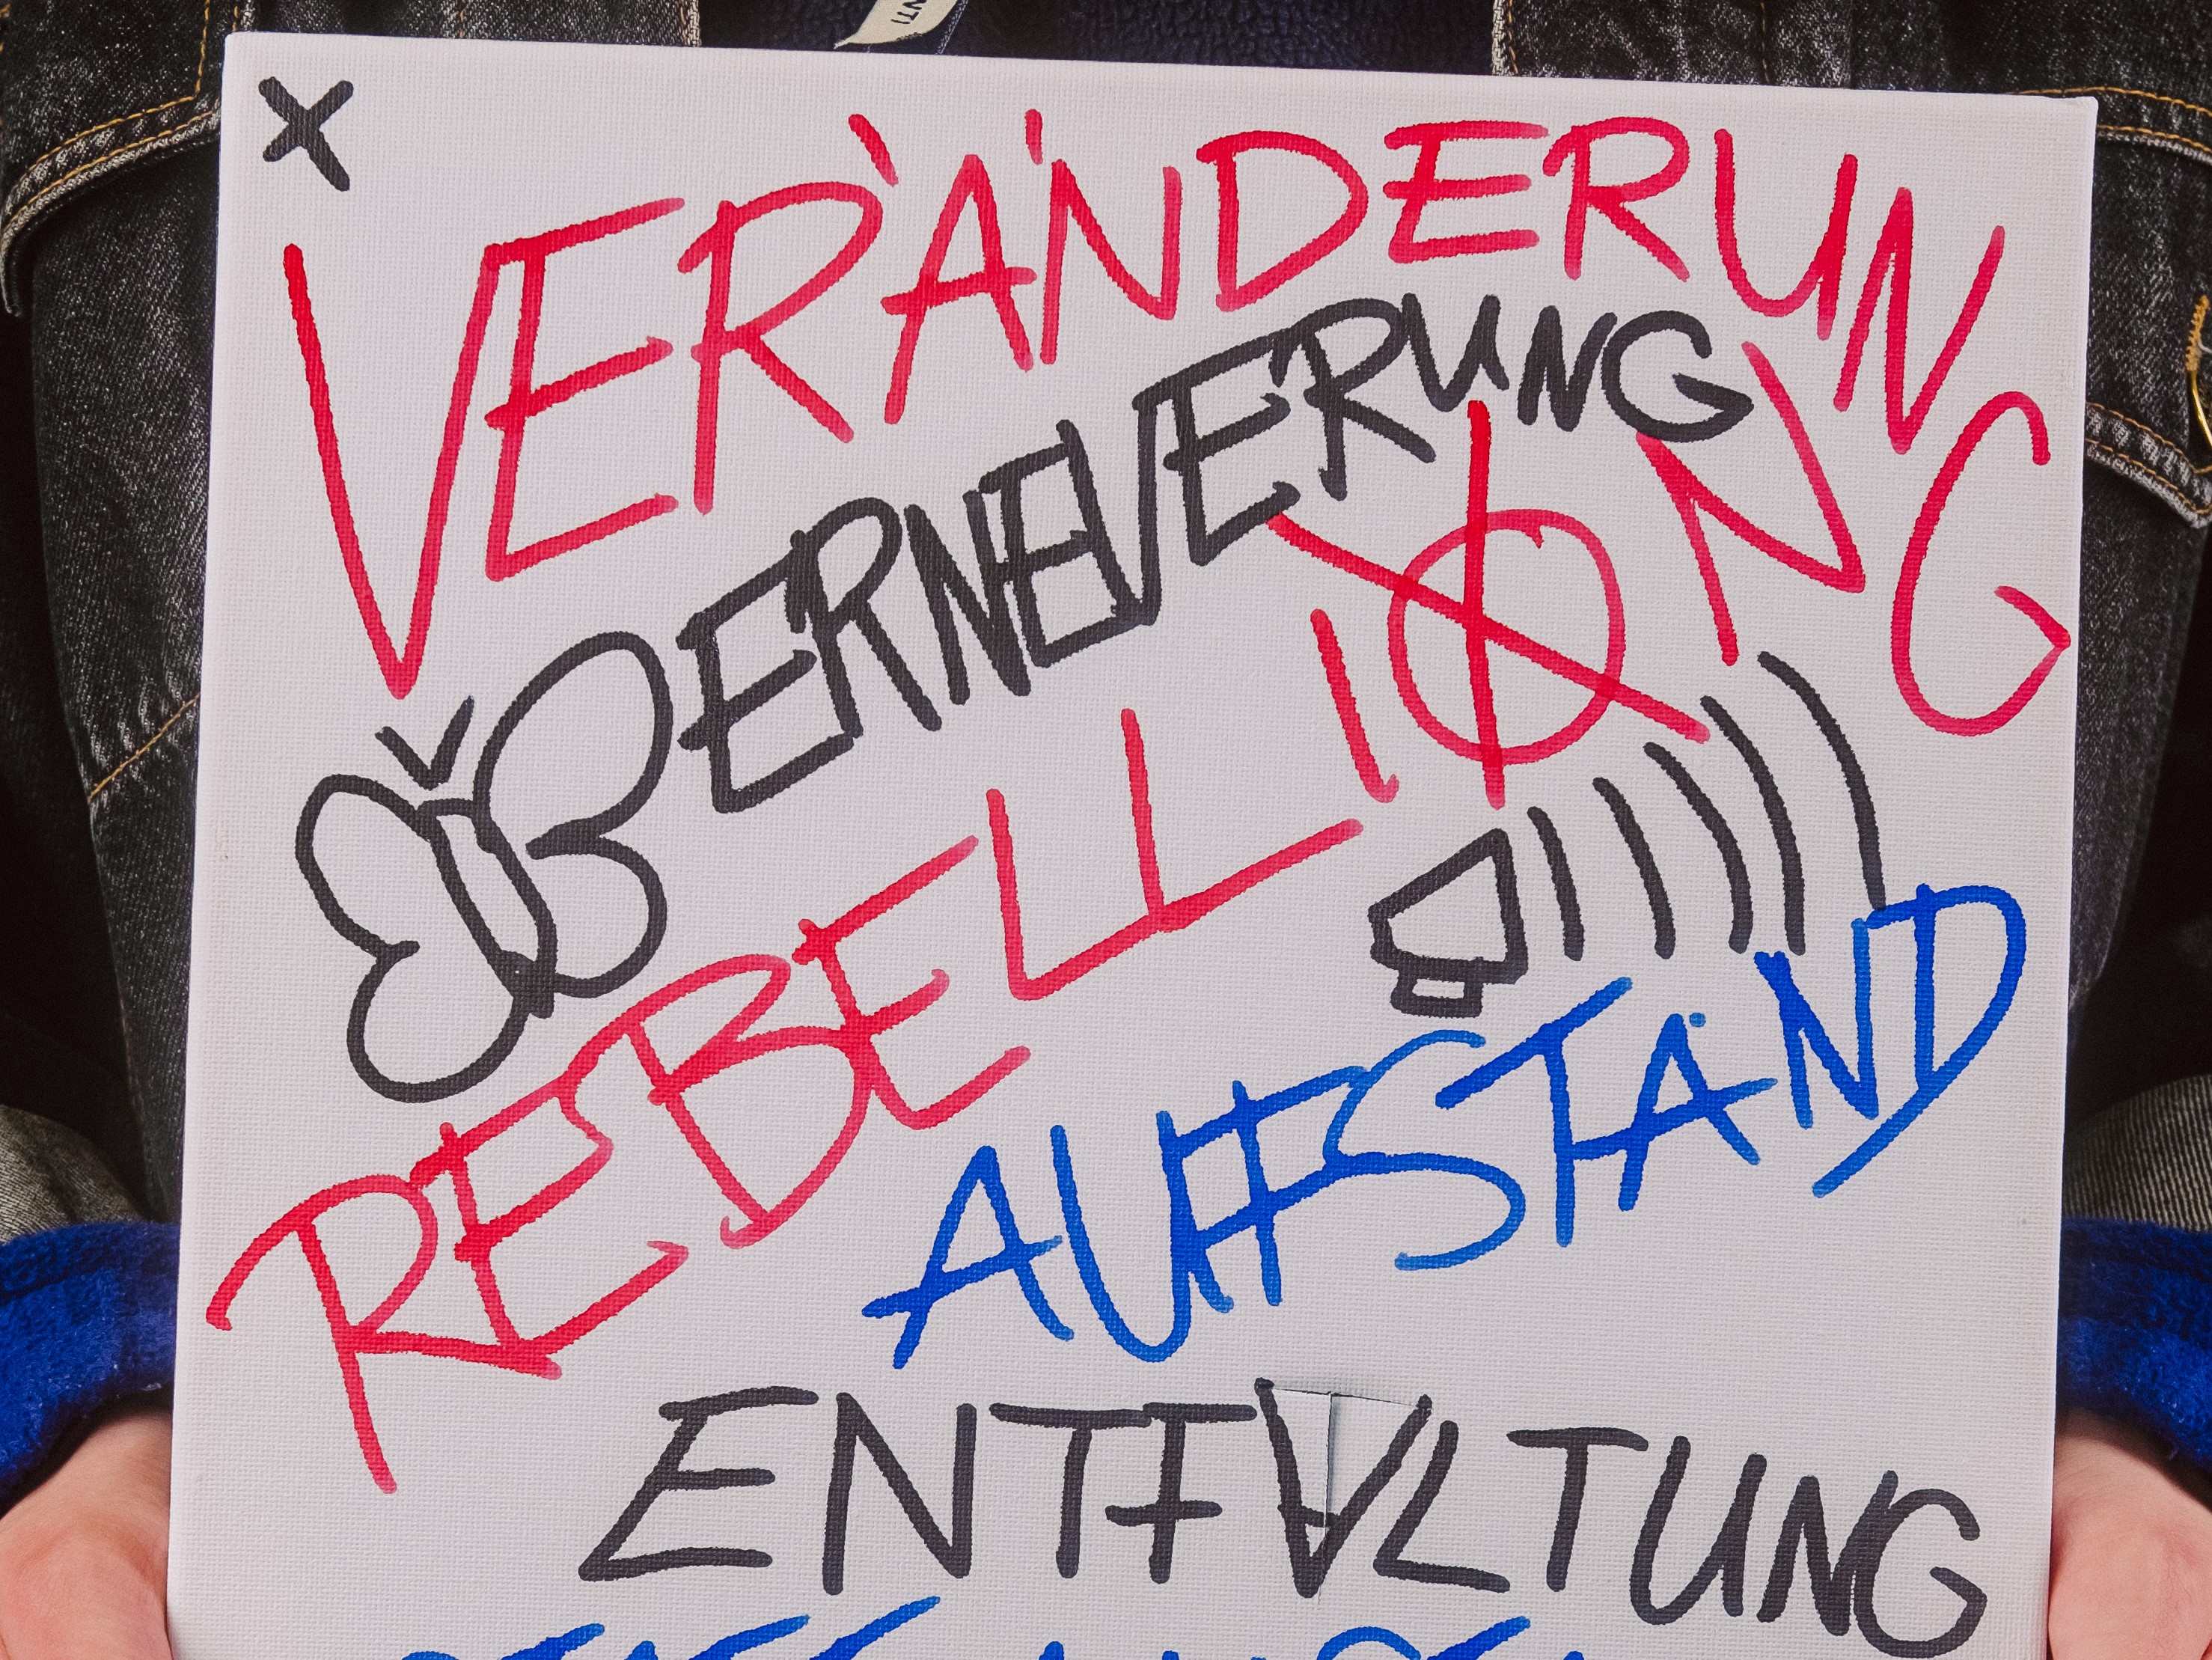 X
VERÄNDERUNG
ERNEVERUNG
REBELLION
AUFSTAND
ENTFALTUNG